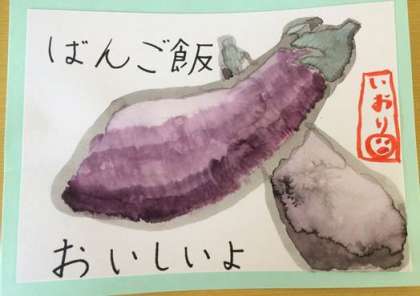 ばんご飯
いおり
おいしいよ